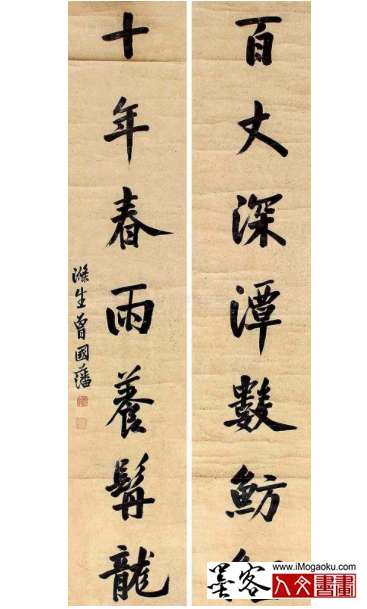 百丈深潭數魴
十年春雨養髯龍
滌生曾國藩
www.iMogaoku.com
墨客人文書畫